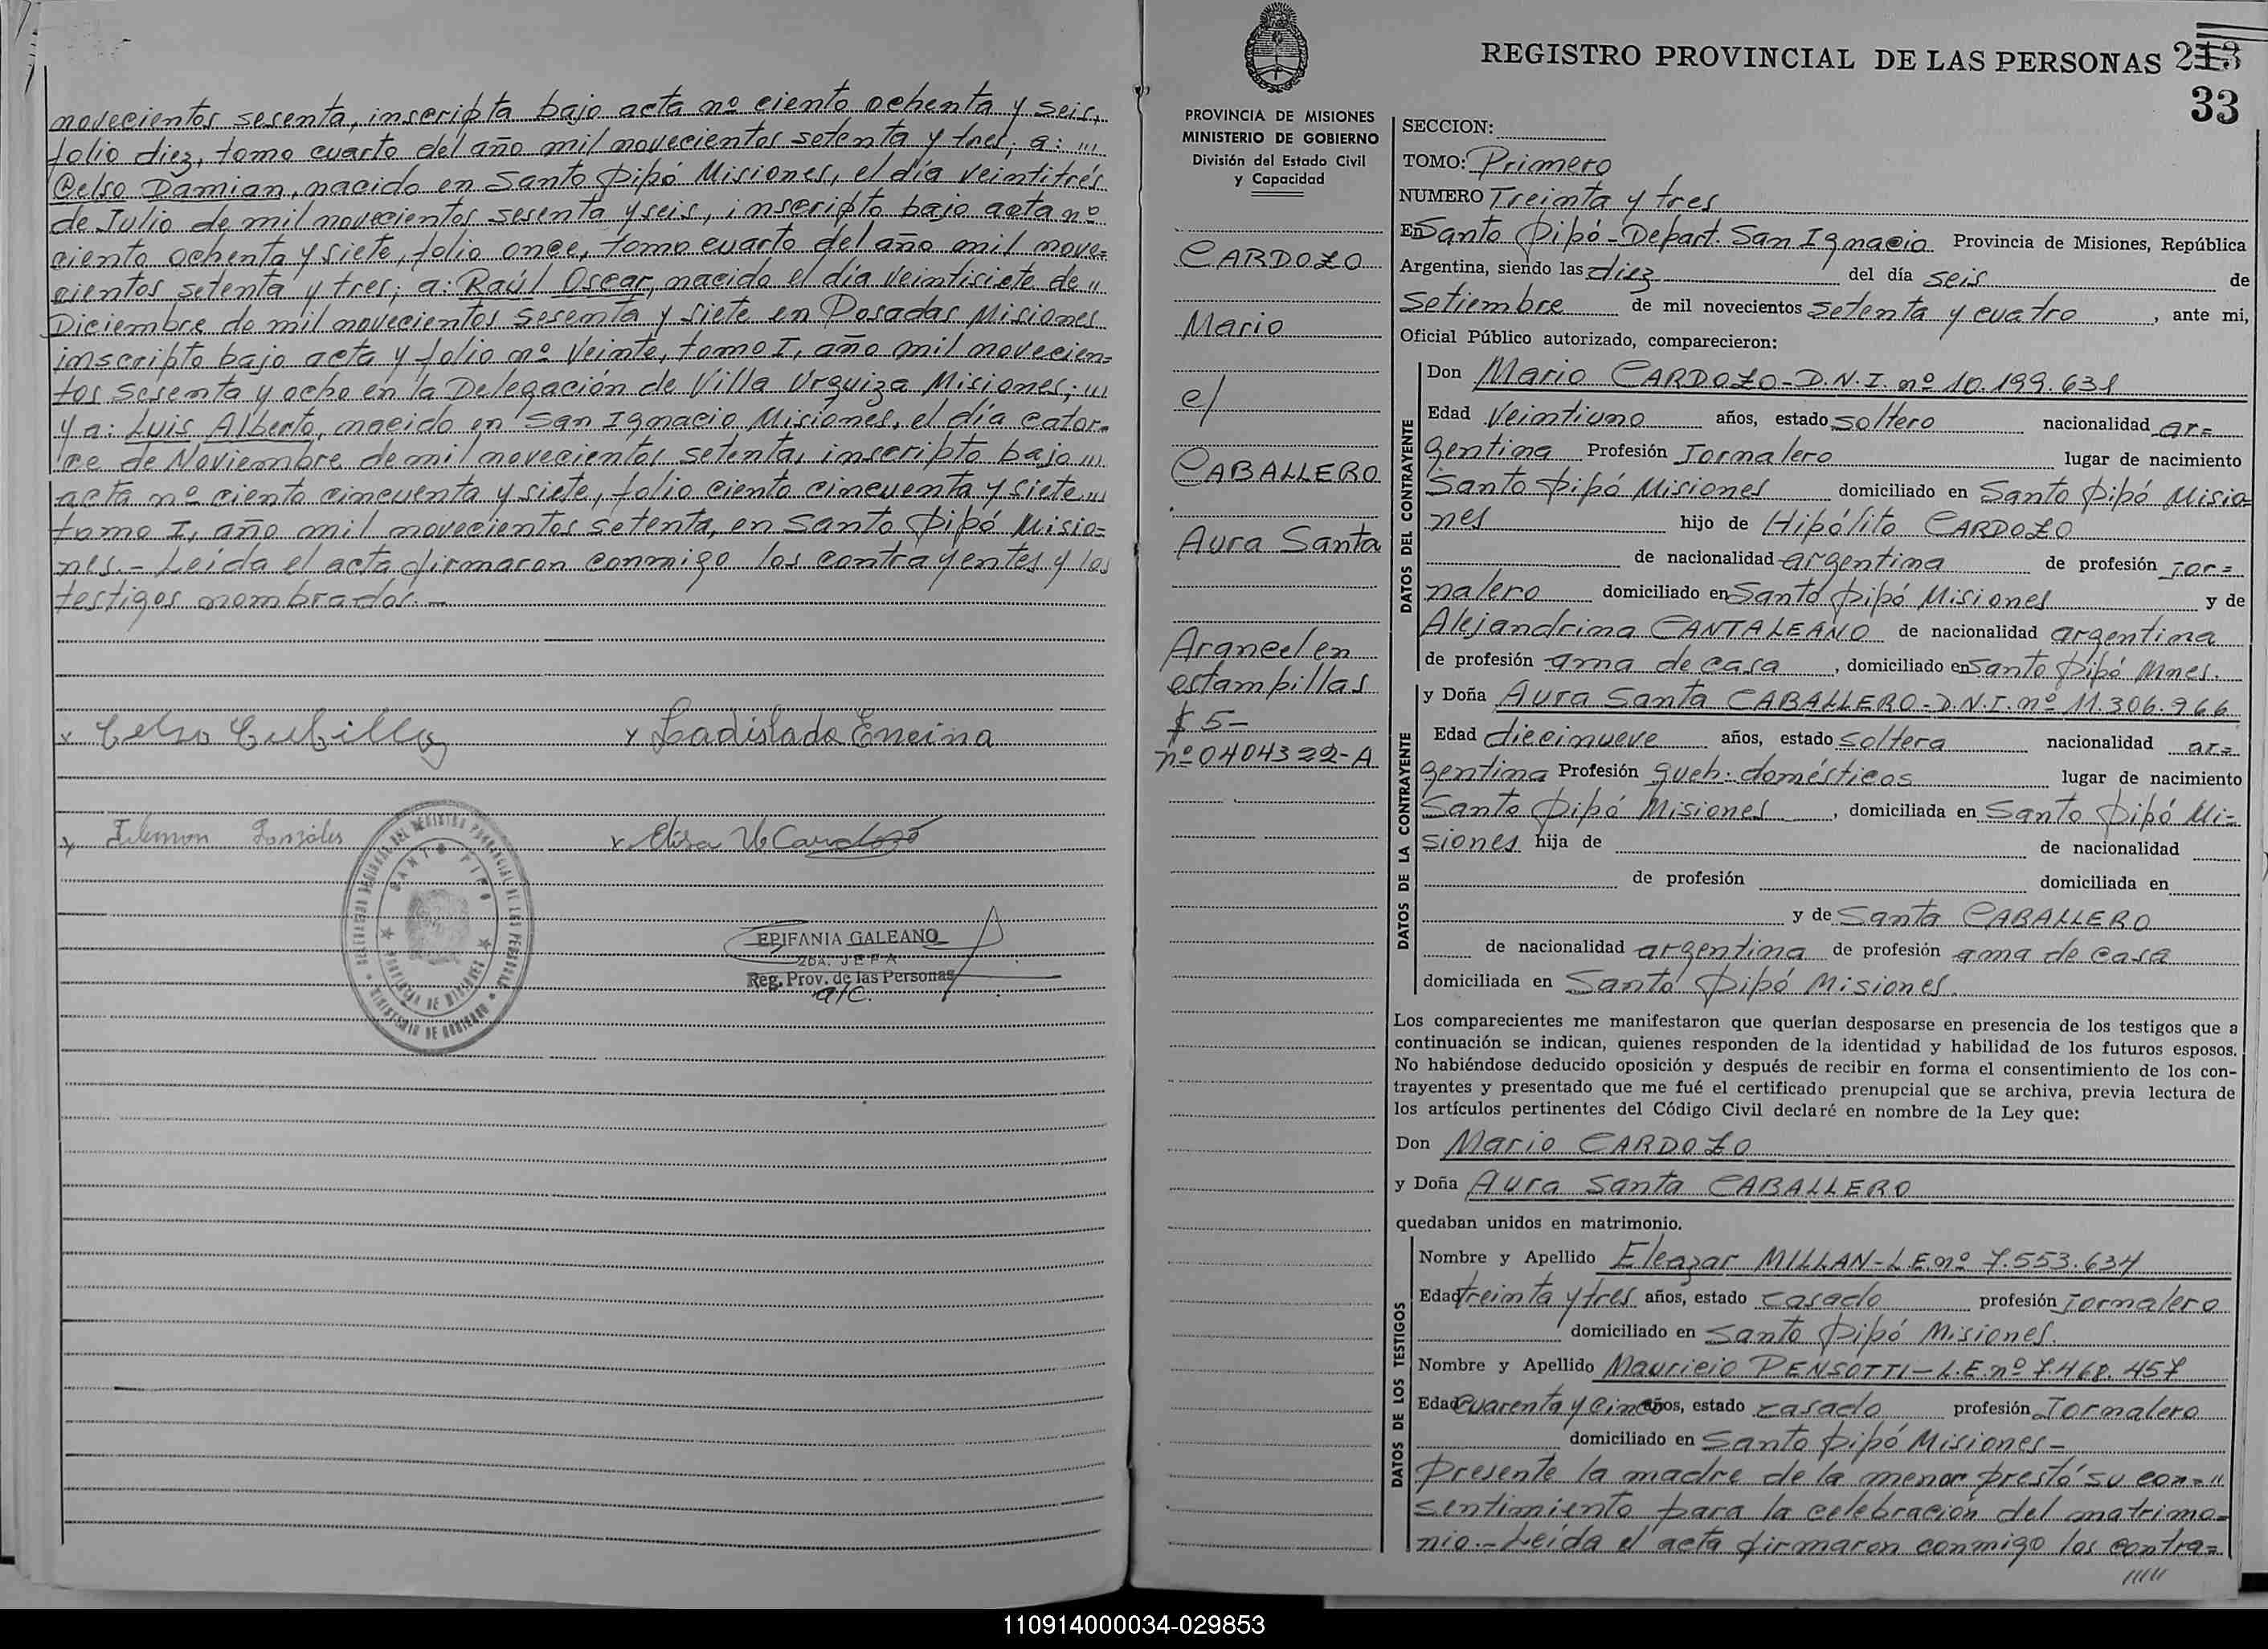 novecientos sesenta, inscripta bajo acta nº ciento ochenta y seis,
folio diez, tomo cuarto del año mil novecientos setenta y tres, a: "'
Celso Damian, nacido en Santo Pipó Misiones, el día veintitrés
de Julio de mil novecientos sesenta y seis, inscripto bajo acta nº
ciento ochenta y siete, folio once, tomo cuarto del año mil nove=
cientos setenta y tres; a: Raúl Oscar, nacido el día veintisiete de "
Diciembre de mil novecientos sesenta y siete en Posadas Misiones
inscripto bajo acta y folio nº Veinte, tomo I, año mil novecien=
tos sesenta y ocho en la Delegación de Villa Urquiza Misiones; "'
y a: Luis Alberto, nacido en San Ignacio Misiones, el día cator=
ce de Noviembre de mil novecientos setenta, inscripto bajo "'
acta nº ciento cincuenta y siete, folio ciento cincuenta y siete "'
tomo I, año mil novecientos setenta, en Santo Pipó Misio=
nes.- Leída el acta firmaron conmigo los contrayentes y los
testigos nombrados.-
x Celso Cubilla x Ladislada Encina
x Filemon Gonzáles x Elisa V C
SANTO PIPO
MINISTERIO DE GOBIERNO
EPIFANIA GALEANO
2DA. JEFA
Reg. Prov. de las Personas
a/c.
PROVINCIA DE MISIONES
MINISTERIO DE GOBIERNO
División del Estado Civil
y Capacidad
CARDOZO
Mario
c/
CABALLERO
Aura Santa
Arancel en
estampillas
$ 5-
nº 0404322-A
REGISTRO PROVINCIAL DE LAS PERSONAS 213
33
SECCION:
TOMO: Primero
NUMERO Treinta y tres
En Santo Pipó-Depart. San Ignacio Provincia de Misiones, República
Argentina, siendo las diez del día seis de
Setiembre de mil novecientos setenta y cuatro, ante mi,
Oficial Público autorizado, comparecieron:
DATOS DEL CONTRAYENTE
Don Mario CARDOZO-D.N.I. nº 10.199.631
Edad Veintiuno años, estado soltero nacionalidad ar=
gentina Profesión Jornalero lugar de nacimiento
Santo Pipó Misiones domiciliado en Santo Pipó Misio=
nes hijo de Hipólito CARDOZO
de nacionalidad argentina de profesión jor=
nalero domiciliado en Santo Pipó Misiones y de
Alejandrina CANTALEANO de nacionalidad argentina
de profesión ama de casa, domiciliado en Santo Pipó Mnes.
DATOS DE LA CONTRAYENTE
y Doña Aura Santa CABALLERO-D.N.I. nº 11.306.966
Edad diecinueve años, estado soltera nacionalidad ar=
gentina Profesión queh. domésticos lugar de nacimiento
Santo Pipó Misiones, domiciliada en Santo Pipó Mi=
siones hija de de nacionalidad
de profesión domiciliada en
y de Santa CABALLERO
de nacionalidad argentina de profesión ama de casa
domiciliada en Santo Pipó Misiones.
Los comparecientes me manifestaron que querían desposarse en presencia de los testigos que a
continuación se indican, quienes responden de la identidad y habilidad de los futuros esposos.
No habiéndose deducido oposición y después de recibir en forma el consentimiento de los con-
trayentes y presentado que me fué el certificado prenupcial que se archiva, previa lectura de
los artículos pertinentes del Código Civil declaré en nombre de la Ley que:
Don Mario CARDOZO
y Doña Aura Santa CABALLERO
quedaban unidos en matrimonio.
DATOS DE LOS TESTIGOS
Nombre y Apellido Eleazar MILLAN-L.E. nº 7.553.634
Edad treinta y tres años, estado casado profesión jornalero
domiciliado en Santo Pipó Misiones.
Nombre y Apellido Mauricio PENSOTTI-L.E. nº 7.468.457
Edad cuarenta y cinco años, estado casado profesión Jornalero
domiciliado en Santo Pipó Misiones-
presente la madre de la menor prestó su con="
sentimiento para la celebración del matrimo=
nio.- Leída el acta firmaron conmigo los contra=
/////
110914000034-029853